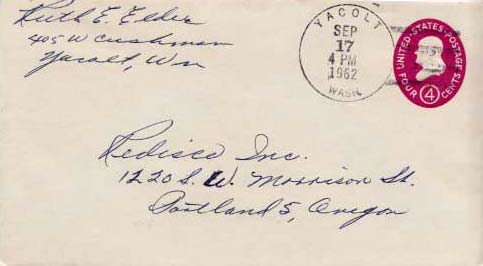 Ruth E. Elder
405 W Cushman
Yacolt, Wn
YACOLT
SEP
17
4 PM
1962
WASH.
UNITED·STATES·POSTAGE
FOUR 4 CENTS
Redisco Inc.
1220 S. W. Morrison St.
Portland 5, Oregon